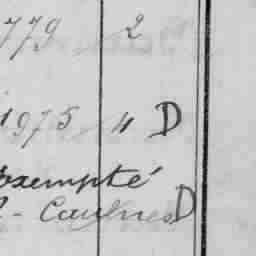 779 2
1975 4 D
exempté
- Caulnes D